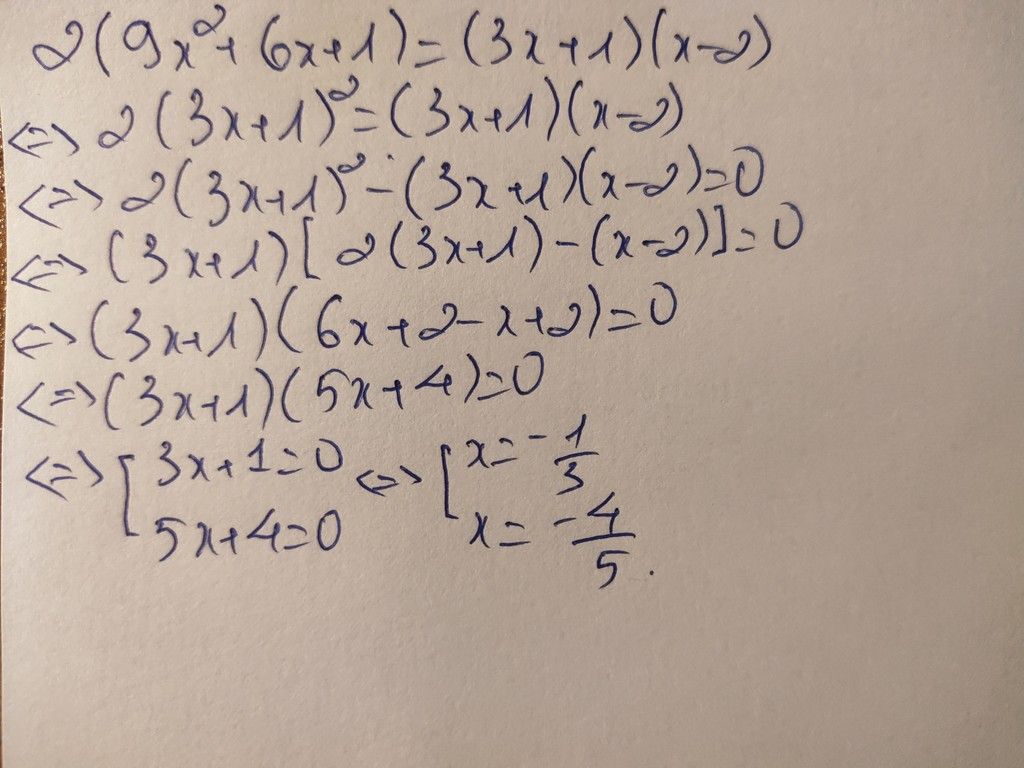 2(9x²+6x+1)=(3x+1)(x-2)
<=> 2(3x+1)²=(3x+1)(x-2)
<=> 2(3x+1)²-(3x+1)(x-2)=0
<=> (3x+1)[2(3x+1)-(x-2)]=0
<=> (3x+1)(6x+2-x+2)=0
<=> (3x+1)(5x+4)=0
<=> [3x+1=0 <=> [x=-1/3
5x+4=0 x=-4/5.